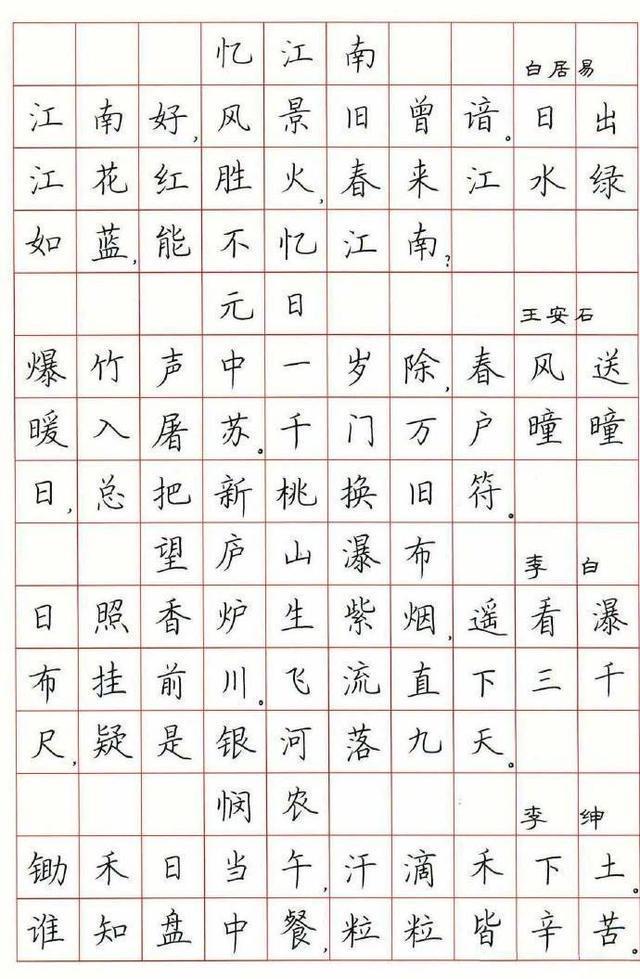 忆江南 白居易
江南好,风景旧曾谙。日出
江花红胜火,春来江水绿
如蓝,能不忆江南?
元日 王安石
爆竹声中一岁除,春风送
暖入屠苏。千门万户曈曈
日,总把新桃换旧符。
望庐山瀑布 李白
日照香炉生紫烟,遥看瀑
布挂前川。飞流直下三千
尺,疑是银河落九天。
悯农 李绅
锄禾日当午,汗滴禾下土。
谁知盘中餐,粒粒皆辛苦。